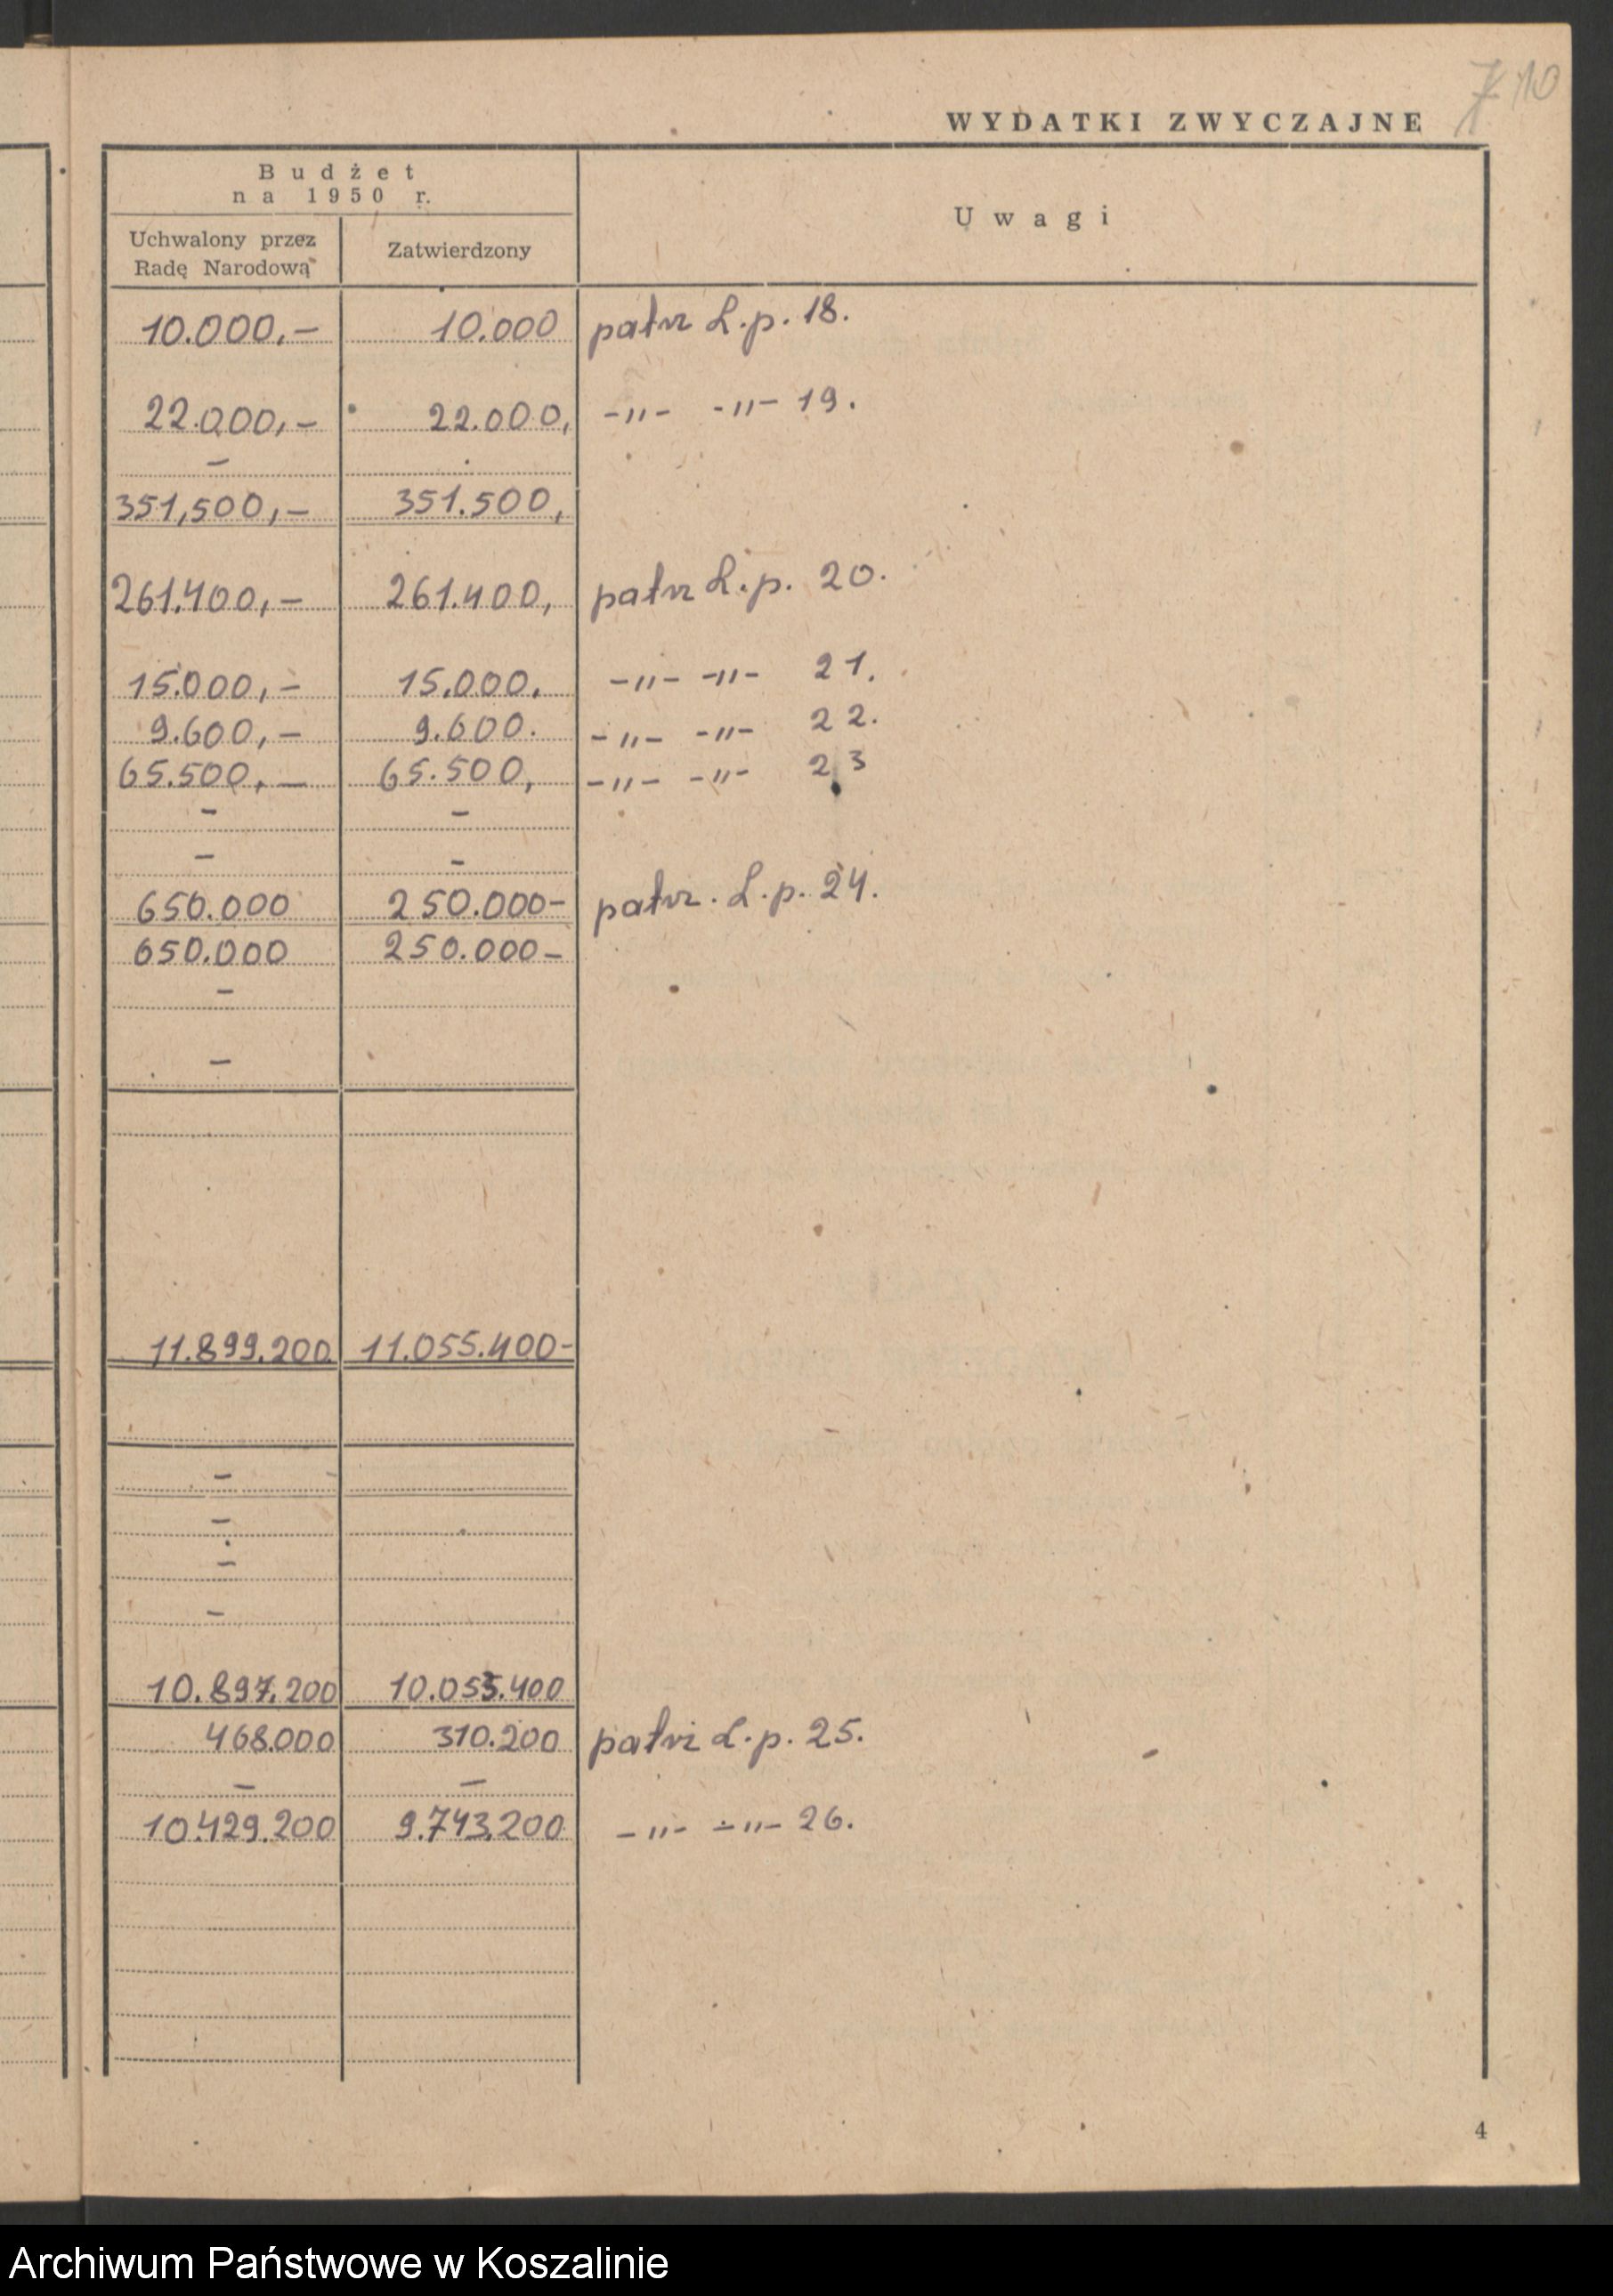 7 10
WYDATKI ZWYCZAJNE
Budżet
na 1950 r.
Uchwalony przez
Radę Narodową
Zatwierdzony
Uwagi
10.000,- 10.000 patrz L.p. 18.
22.000,- 22.000, -"- -"- 19.
-
351,500,- 351.500,
261.400,- 261.400, patrz L.p. 20.
15.000,- 15.000, -"- -"- 21.
9.600,- 9.600. -"- -"- 22.
65.500,- 65.500, -"- -"- 23
- -
- -
650.000 250.000- patrz. L.p. 24.
650.000 250.000-
-
-
11.899.200 11.055.400-
-
-
-
-
10.897.200 10.053.400
468.000 310.200 patrz L.p. 25.
- -
10.429.200 9.743.200 -"- -"- 26.
4
Archiwum Państwowe w Koszalinie